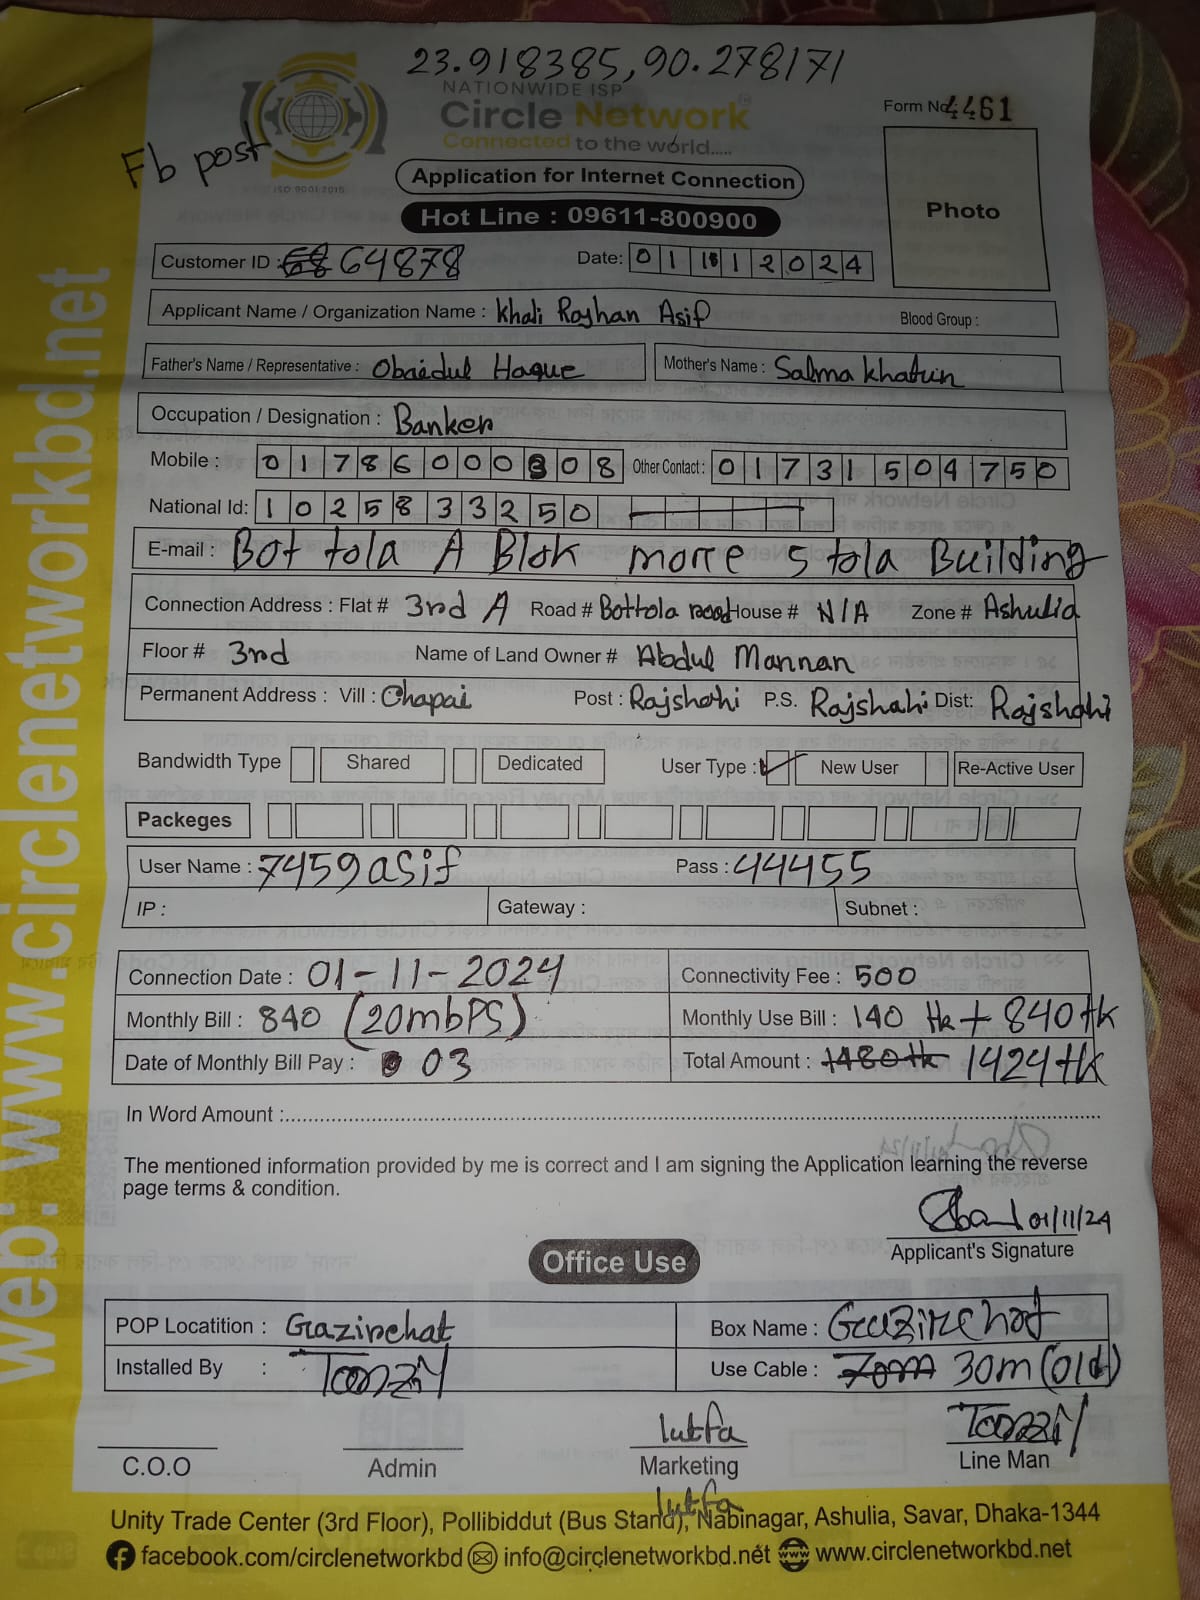 23.918385,90.278171
NATIONWIDE ISP
Circle Network
Connected to the world.....
Form No. 4461
Fb post
ISO 9001:2015
Application for Internet Connection
Photo
Hot Line : 09611-800900
Customer ID : 64878 Date: 01 11 2024
Applicant Name / Organization Name : Khali Rayhan Asif Blood Group :
Father's Name / Representative : Obaidul Haque Mother's Name : Salma Khatun
Occupation / Designation : Banker
Mobile : 01786000808 Other Contact : 01731504750
National Id: 1025833250
E-mail : Bot tola A Blok morre 5 tola Building
Connection Address : Flat # 3rd A Road # Bottola road House # N/A Zone # Ashulia
Floor # 3rd Name of Land Owner # Abdul Mannan
Permanent Address : Vill : Chapai Post : Rajshahi P.S. Rajshahi Dist: Rajshahi
Bandwidth Type Shared Dedicated User Type : New User Re-Active User
Packeges
User Name : 7459asif Pass : 44455
IP : Gateway : Subnet :
Connection Date : 01-11-2024 Connectivity Fee : 500
Monthly Bill : 840 (20mbPS) Monthly Use Bill : 140 tk + 840tk
Date of Monthly Bill Pay : 03 Total Amount : 1480tk 1424tk
In Word Amount :
The mentioned information provided by me is correct and I am signing the Application learning the reverse
page terms & condition.
01/11/24
Applicant's Signature
Office Use
POP Locatition : Gazirchat Box Name : Gazirchat
Installed By : Use Cable : 70m 30m (old)
lutfa
C.O.O Admin Marketing Line Man
lutfa
Unity Trade Center (3rd Floor), Pollibiddut (Bus Stand), Nabinagar, Ashulia, Savar, Dhaka-1344
facebook.com/circlenetworkbd info@circlenetworkbd.net www.circlenetworkbd.net
web: www.circlenetworkbd.net